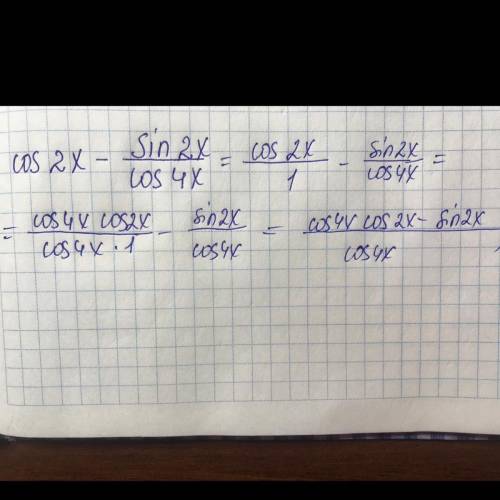 cos 2x - sin 2x / cos 4x = cos 2x / 1 - sin 2x / cos 4x =
= cos 4x cos 2x / cos 4x · 1 - sin 2x / cos 4x = cos 4x cos 2x - sin 2x / cos 4x